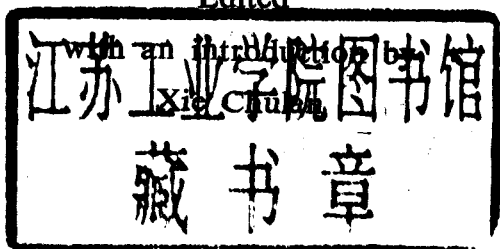 Edited
with an introduction by
江苏工业学院图书馆
藏书章